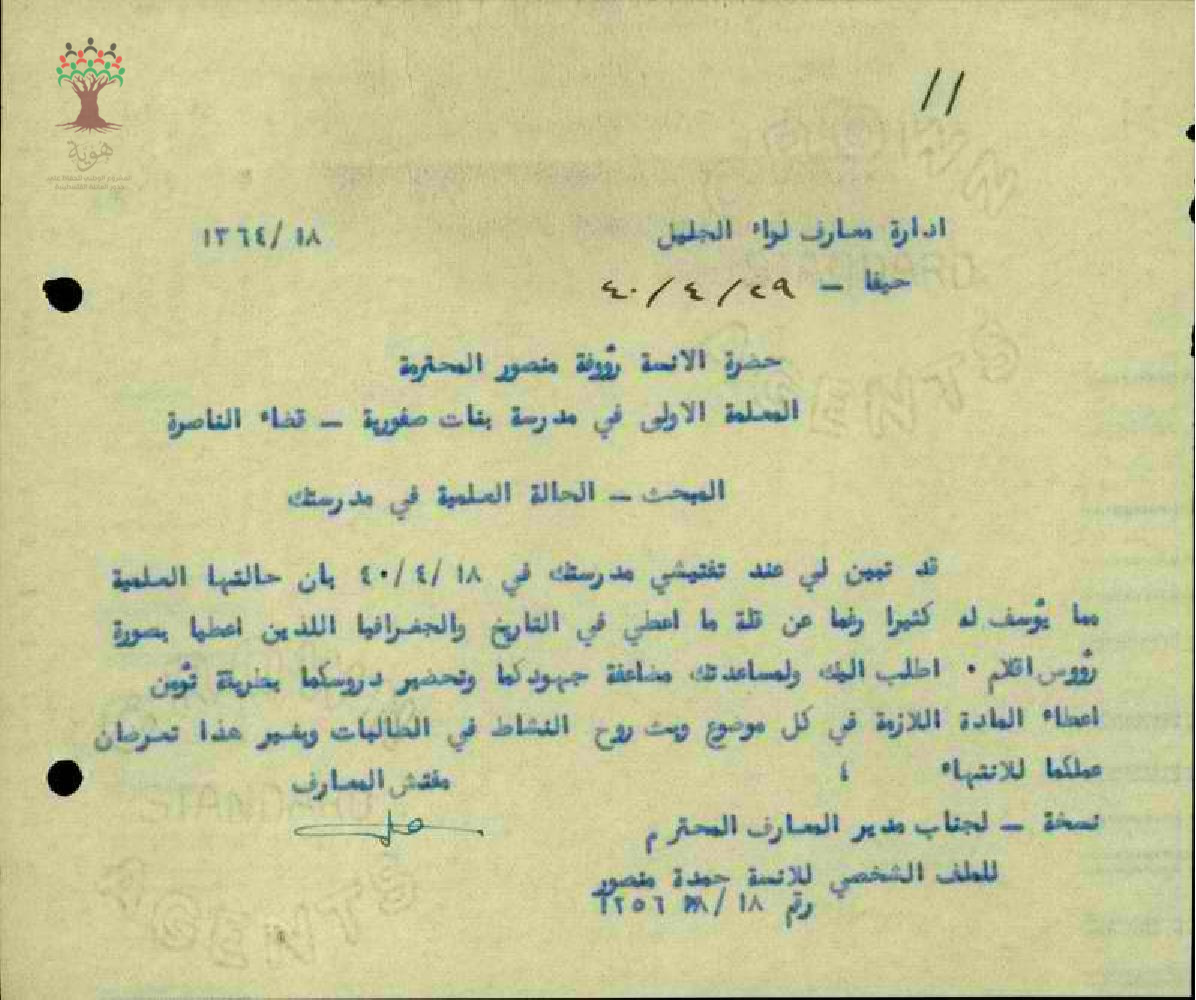 هوية
المشروع الوطني للحفاظ على
جذور العائلة الفلسطينية
١١
ادارة معارف لواء الجليل
١٨/ ١٣٦٤
حيفا – ٢٩/٤/٤٠
حضرة الانسة رؤوفة منصور المحترمة
المعلمة الاولى في مدرسة بنات صفورية – قضاء الناصرة
المبحث – الحالة العلمية في مدرستك
قد تبين لي عند تفتيشي مدرستك في ١٨ /٤ /٤٠ بان حالتها العلمية
مما يؤسف له كثيرا رغما عن قلة ما اعطي في التاريخ والجغرافيا اللذين اعطيا بصورة
رؤوس اقلام ٠ اطلب اليك ولمساعدتك مضاعفة جهودكما وتحضير دروسكما بطريقة تؤمن
اعطاء المادة اللازمة في كل موضوع وبث روح النشاط في الطالبات وبغير هذا تعرضان
عملكما للانتهاء ؛
مفتش المعارف
نسخة – لجناب مدير المعارف المحترم
للملف الشخصي للانسة حمدة منصور
رقم ١٨ / ١٢٥٦